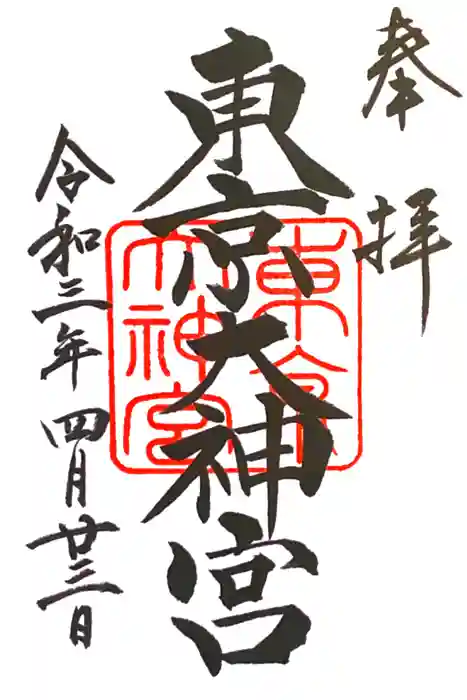 奉拝
東京大神宮
東京大神宮
令和三年四月廿三日